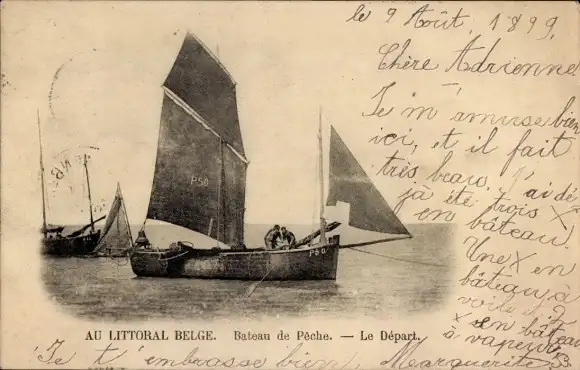 le 9 Août, 1899.
Chère Adrienne
Je m'amuse bien
ici, et il fait
très beau. J'ai dé-
jà été trois x
en bâteau.
Une x en
bâteau à
voile, 2
x en bâteau
à vapeur
P50
P50
AU LITTORAL BELGE. Bateau de Pêche. — Le Départ.
Je t'embrasse bien, Marguerite